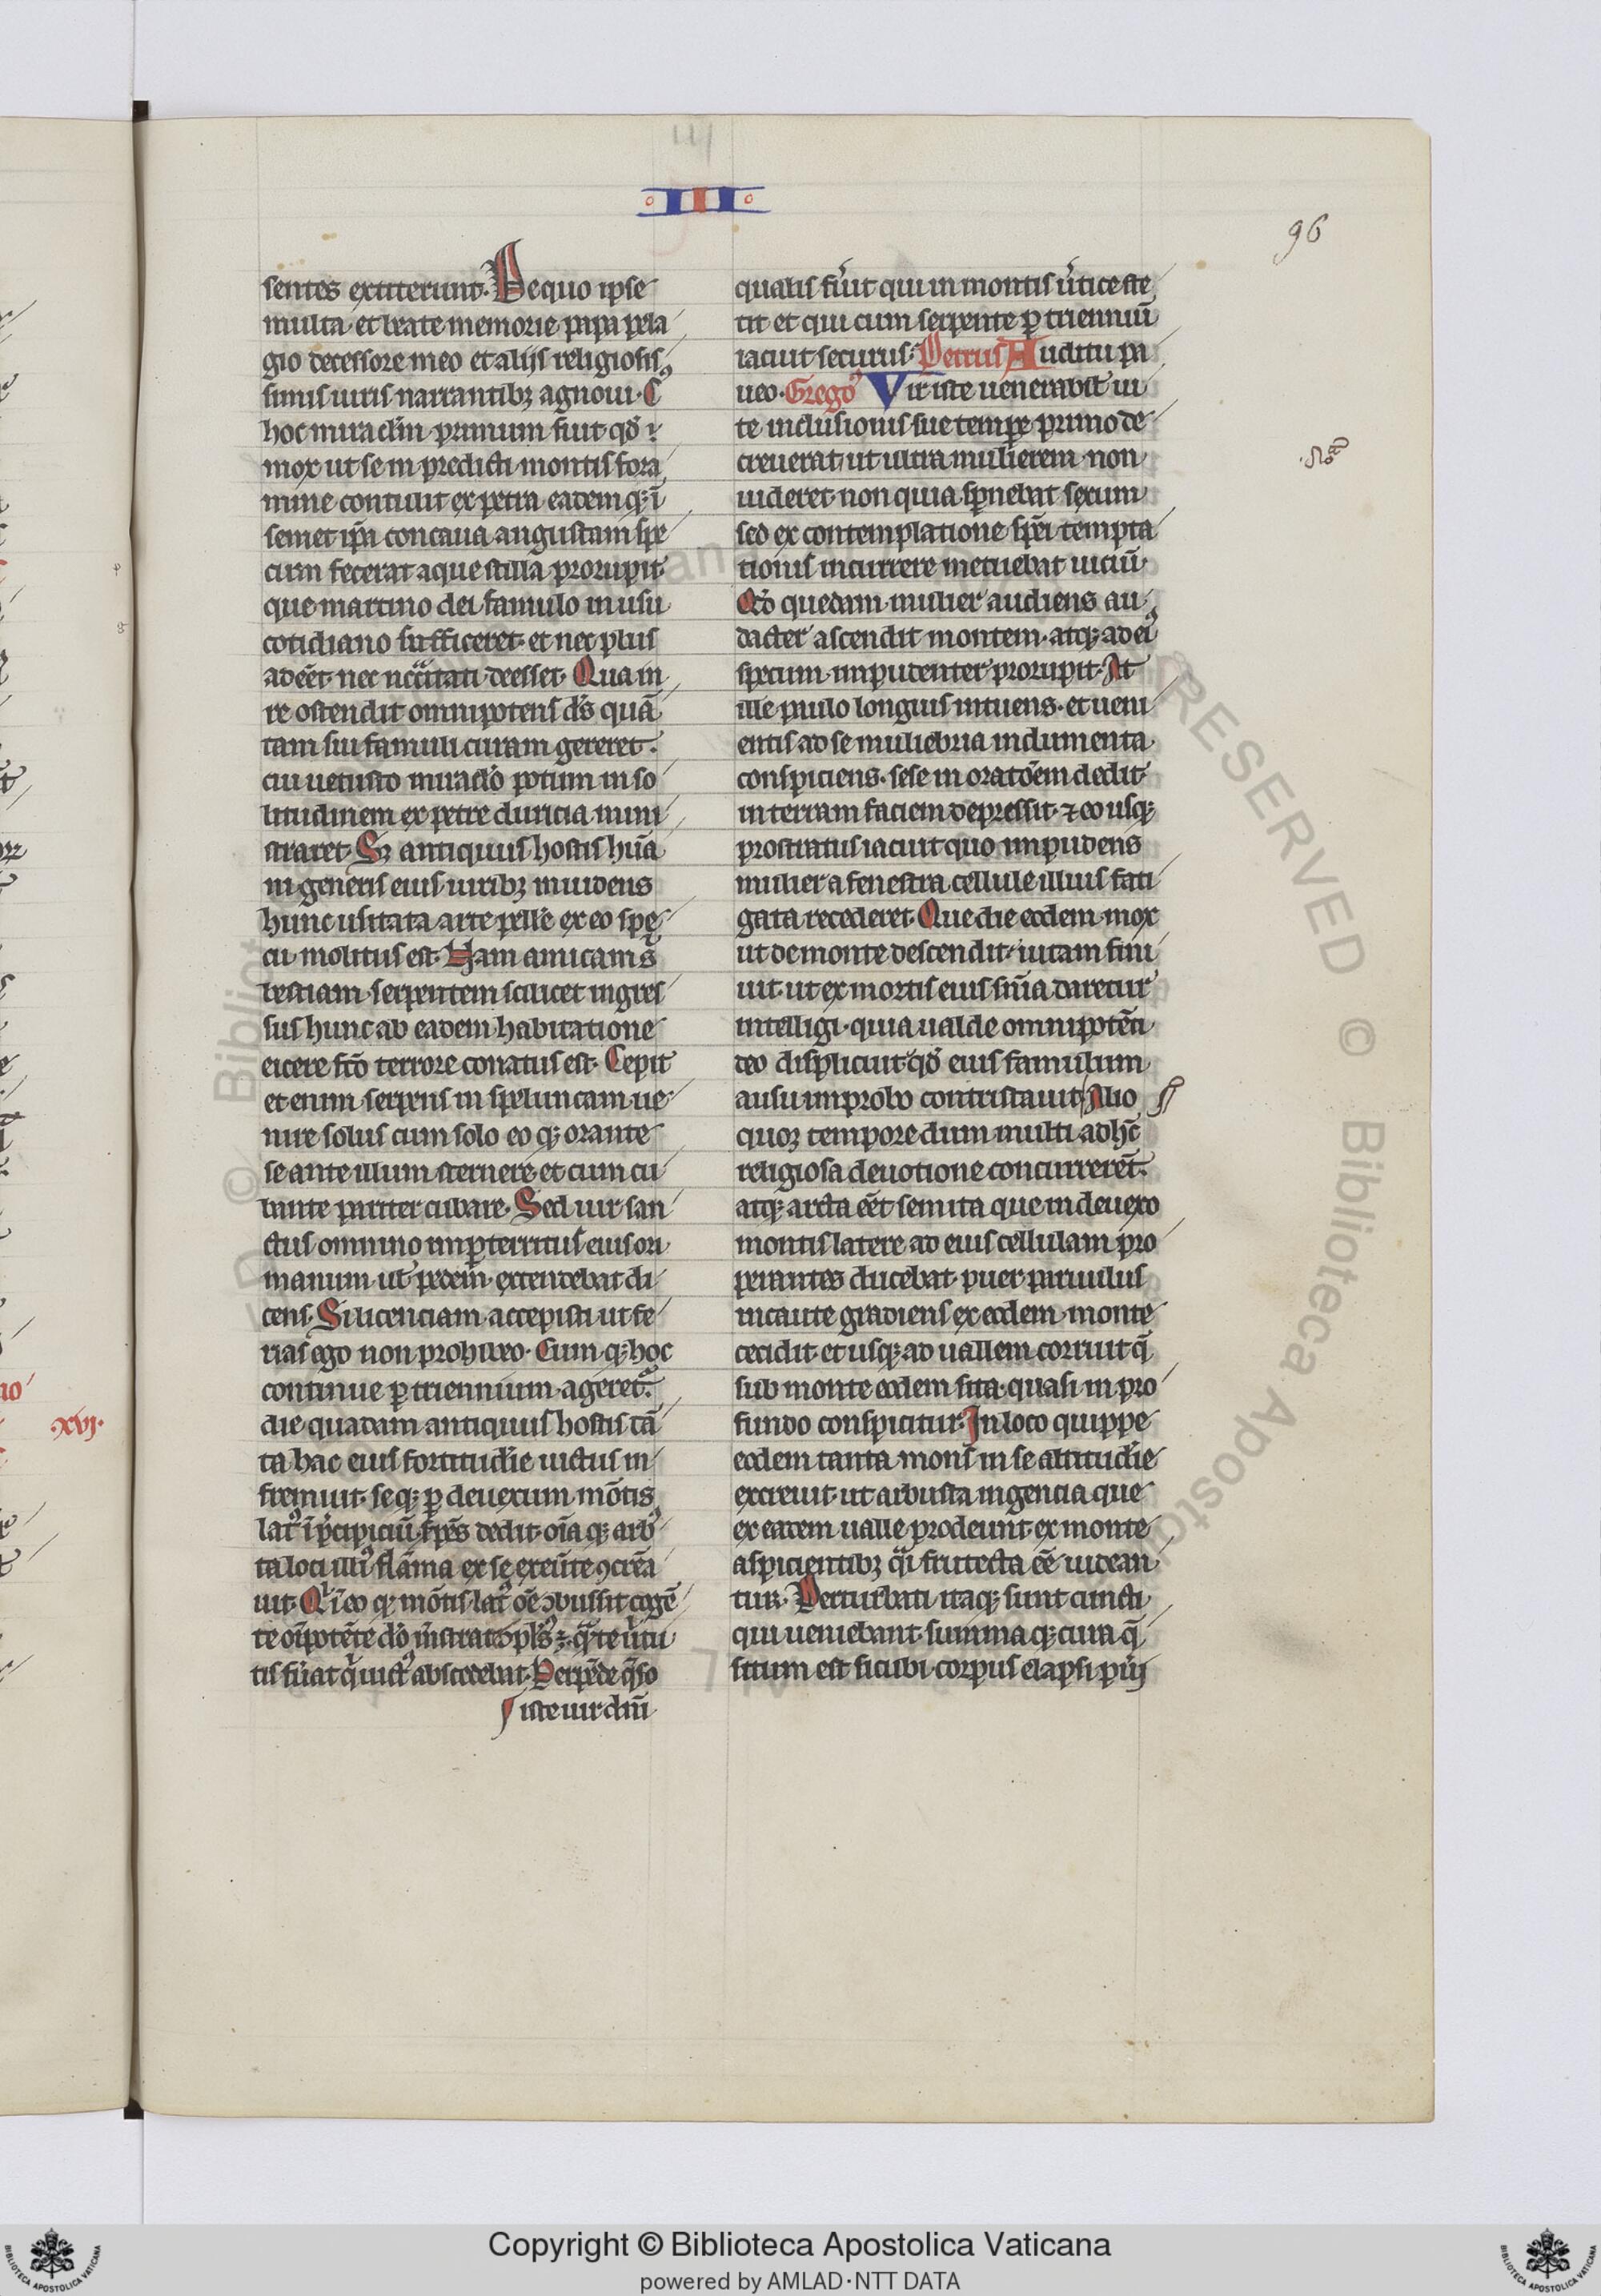 III
96
sentes extiterunt. De quo ipse
multa et beate memorie papa pela
gio decessore meo et alijs religiosis
simis uiris narrantibꝫ agnoui. C
hoc miraclm primum fuit qđ ī
mox ut se in predicti montis fora
mine contulit ex petra eademqꝫ ī
semet ip̄a concaua angustam spe
cum fecerat aque stilla prorupit
que martino dei famulo in usu
cotidiano sufficeret et nec plus
adēēt nec nccītati deesset. Qua in
re ostendit omnipotens ds̄ quā
tam sui famuli curam gereret.
cui uetusto miraclo potum in so
litudinem ex petre duricia mini
straret. Sꝫ antiquus hostis hūa
ni generis eius uiribꝫ inuidens
hunc usitata arte pell'e ex eo spe
cu molitus est. Nam amicam s
bestiam serpentem scilicet ingres
sus hunc ab eadem habitatione
eicere fc̄o terrore conatus est. Cepit
et enim serpens in speluncam ue
nire solus cum solo eo qꝫ orante
se ante illum sternere et cum cu
bante pariter cubare. Sed uir san
ctus omnino imꝑterritus eius ori
manum ul' pedem extendebat di
cens. Si licenciam accepisti ut fe
rias ego non prohibeo. Cum qꝫ hoc
continue ꝑ triennium ageret.
die quadam antiquus hostis tā
ta hac eius fortitudīe uictus in
fremuit seqꝫ ꝑ deuexum mōtis
lat' ī p̄cipiciū s̄pēs dedit oīa qꝫ arb'
ta loci illi' flāma ex se exeūte ꝯcrēa
uit. Q' ī eo qꝫ mōtis lat' oē ꝯbussit cogē
te oīpotēte dō
tis fūat q' uict' abscedebat. Perpēde q̄so
iste uir dn̄i
qualis fūit qui in montis ūtice ste
tit et qui cum serpente ꝑ trienniū
iacuit securus. Petrus Auditu pa
ueo. Grego' Vir iste uenerabil' ui
te inclusionis sue tempe primo de
creuerat ut ultra mulierem non
uideret non quia sp̄nebat sexum
sed ex contemplatione sp̄ei tempta
tionis incurrere metuebat uiciū.
Qđ quedam mulier audiens au
dacter ascendit montem. atqꝫ ad ei'
specum impudenter prorupit. At
ille paulo longius intuens. et ueni
entis ad se muliebria indumenta
conspiciens. sese in oratōem dedit
in terram faciem depressit. ⁊ eo usqꝫ
prostratus iacuit quo impudens
mulier a fenestra cellule illius fati
gata recederet. Que die eodem mox
ut de monte descendit uitam fini
uit. ut ex mortis eius sn̄ia daretur
intelligi. quia ualde omnipotēti
deo displicuit qđ eius famulum
ausu improbo contristauit Alio
quoꝫ tempore dum multi ad hc̄
religiosa deuotione concurrerēt.
atqꝫ arcta eēt semita que in deuexo
montis latere ad eius cellulam pro
perantes ducebat. puer paruulus
incaute gradiens ex eodem monte
cecidit et usqꝫ ad uallem corruit q̄
sub monte eodem sita quasi in pro
fundo conspicitur. In loco quippe
eodem tanta mons in se altitudīe
excreuit. ut arbusta ingencia que
ex eadem ualle prodeunt ex monte
aspicientibꝫ q̄i frutecta eē uidean
tur. Perturbati itaqꝫ sunt cuncti
qui ueniebant. summa qꝫ cura q̄
situm est sicubi corpus elapsi pūi
.xvj.
© Biblioteca Apostolica
RESERVED
Copyright © Biblioteca Apostolica Vaticana
powered by AMLAD·NTT DATA